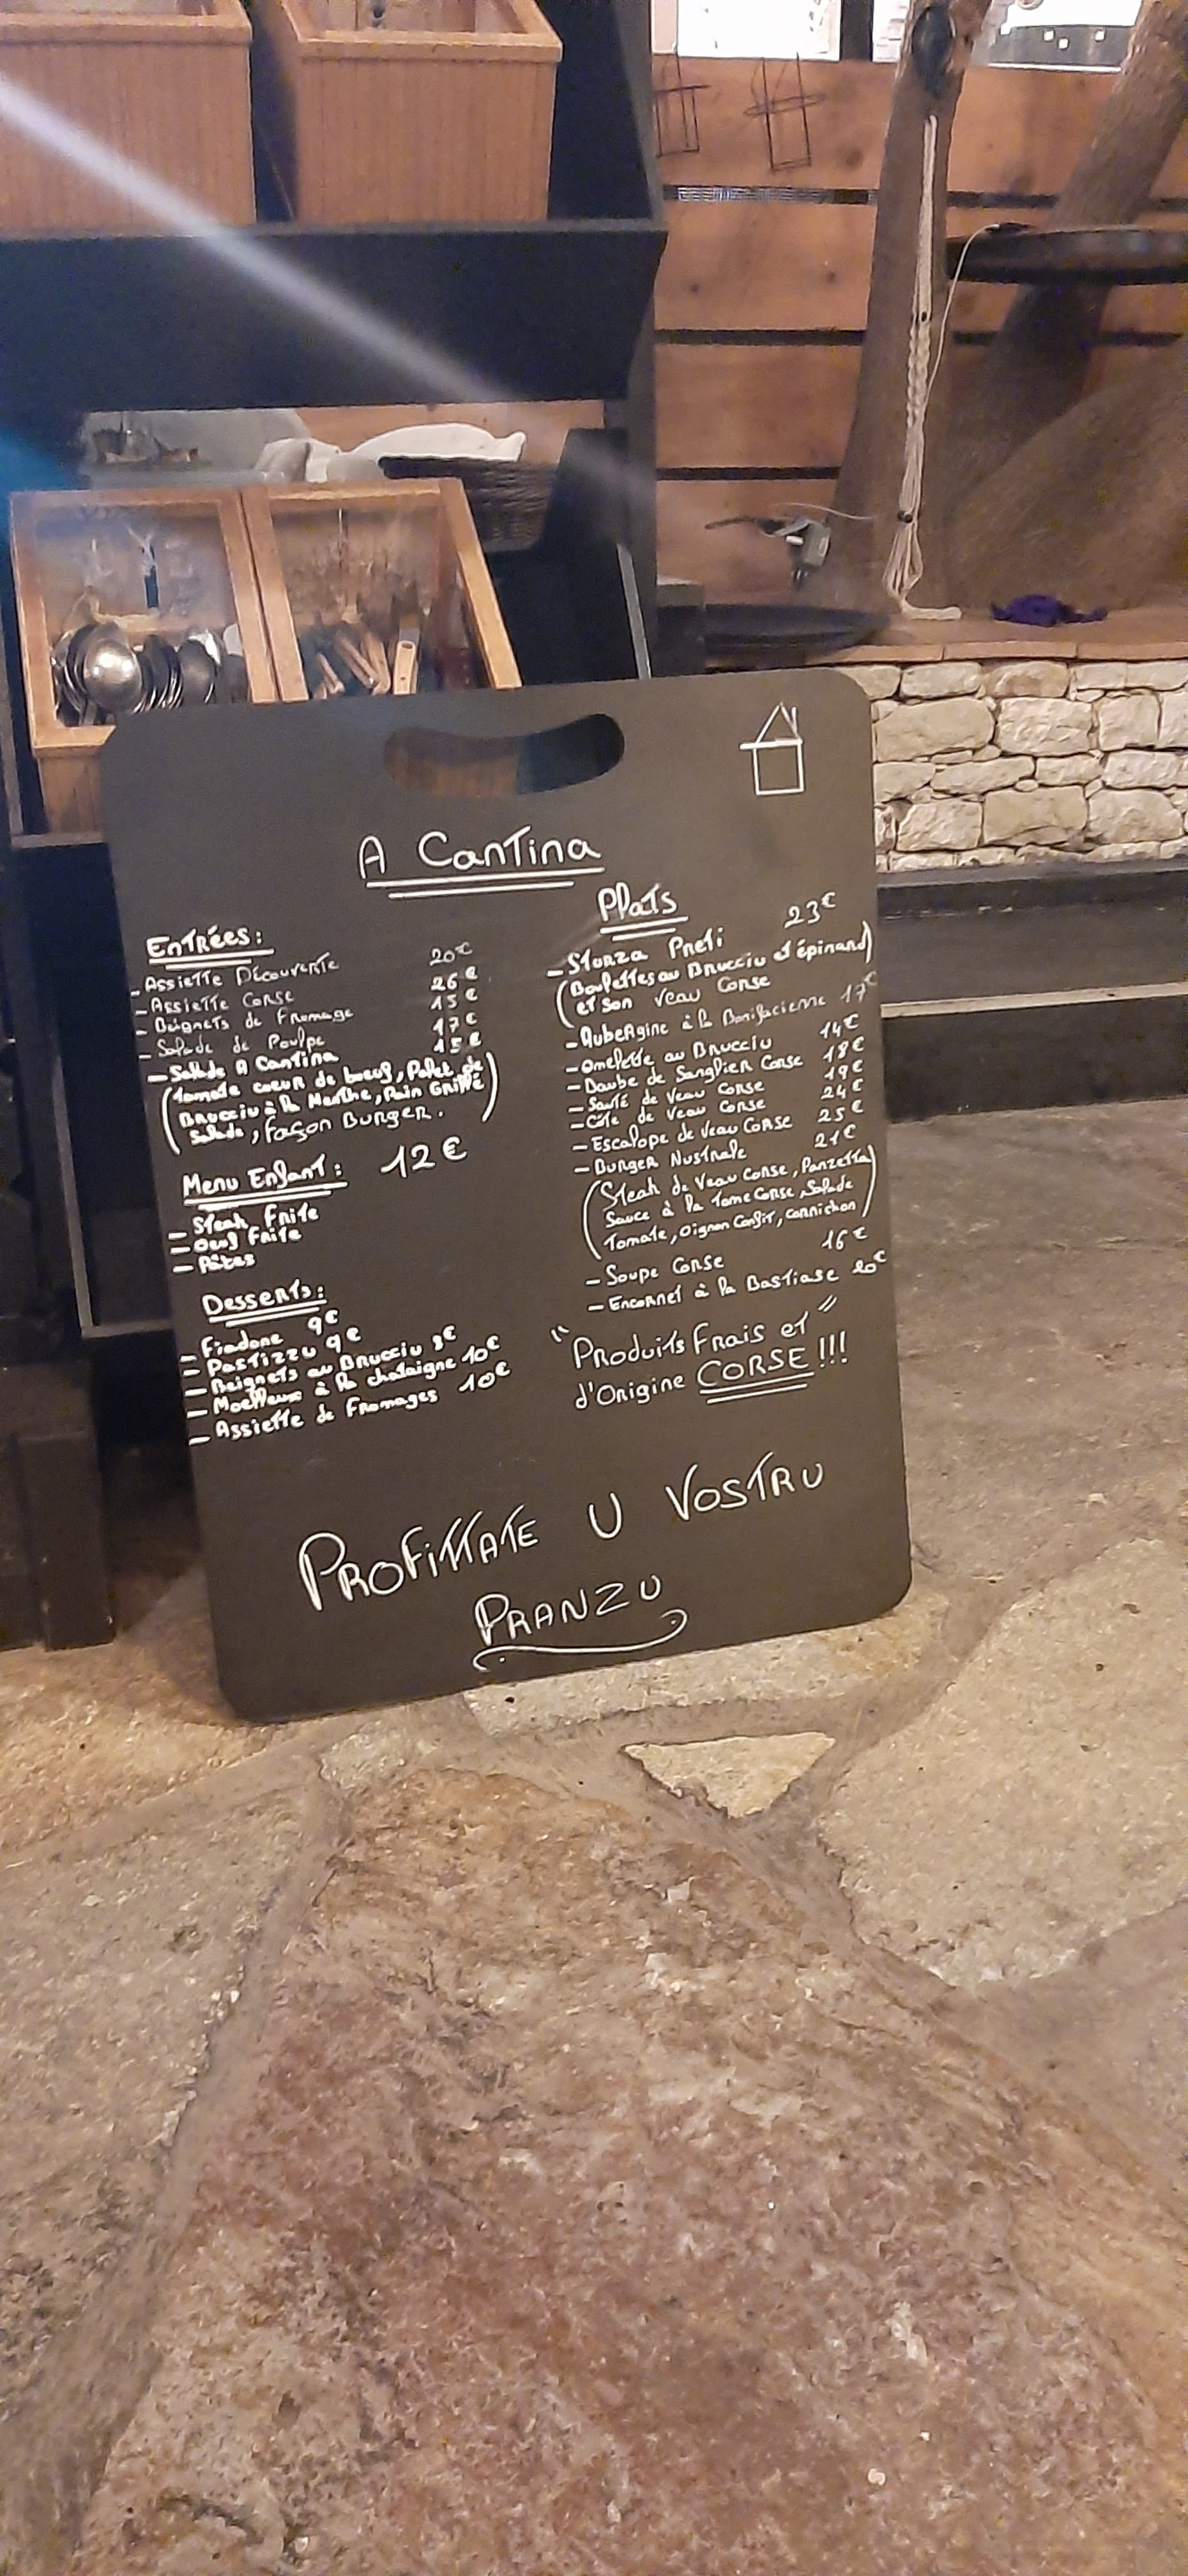 A Cantina
Entrées:
- Assiette Découverte 20€
- Assiette Corse 26€
- Beignets de Fromage 15€
- Salade de Poulpe 17€
- Salade A Cantina 15€
(Tomate coeur de boeuf, Palet de
Brucciu à la Menthe, Pain Grillé
Salade, façon Burger.)
Menu Enfant: 12€
- Steak Frite
- Oeuf Frite
- Pâtes
Desserts:
- Fiadone 9€
- Pastizzu 9€
- Beignets au Brucciu 9€
- Moelleux à la chataigne 10€
- Assiette de Fromages 10€
Plats
- Storza Preti 23€
(Boulettes au Brucciu et épinard
et son Veau Corse)
- Aubergine à la Bonifacienne 17€
- Omelette au Brucciu 14€
- Daube de Sanglier Corse 18€
- Sauté de Veau Corse 19€
- Côte de Veau Corse 24€
- Escalope de Veau Corse 25€
- Burger Nustrale 21€
(Steak de Veau Corse, Panzetta
Sauce à la Tome Corse, Salade
Tomate, Oignon Confit, Cornichon)
- Soupe Corse 16€
- Encornet à la Bastiaise 20€
"Produits Frais et"
d'Origine CORSE!!!
PROFITTATE U VOSTRU
PRANZU